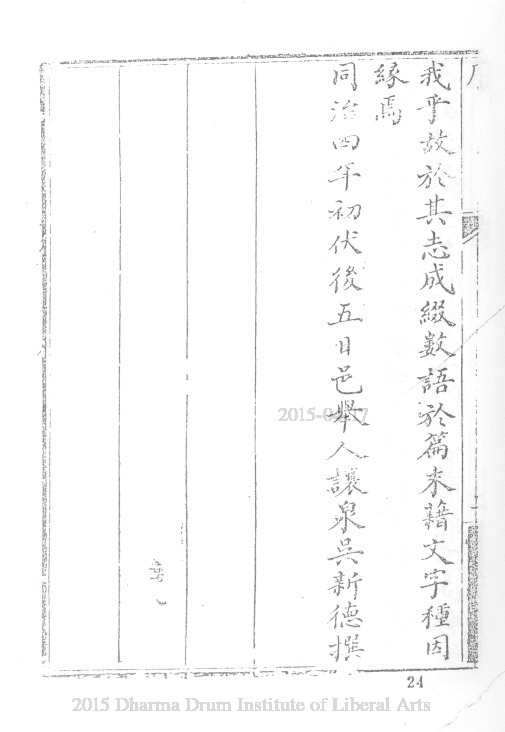 我乎故於其志成綴數語於篇末藉文字種因
緣焉
同治四年初伏後五日邑舉人讓泉吳新德撰
24
2015 Dharma Drum Institute of Liberal Arts